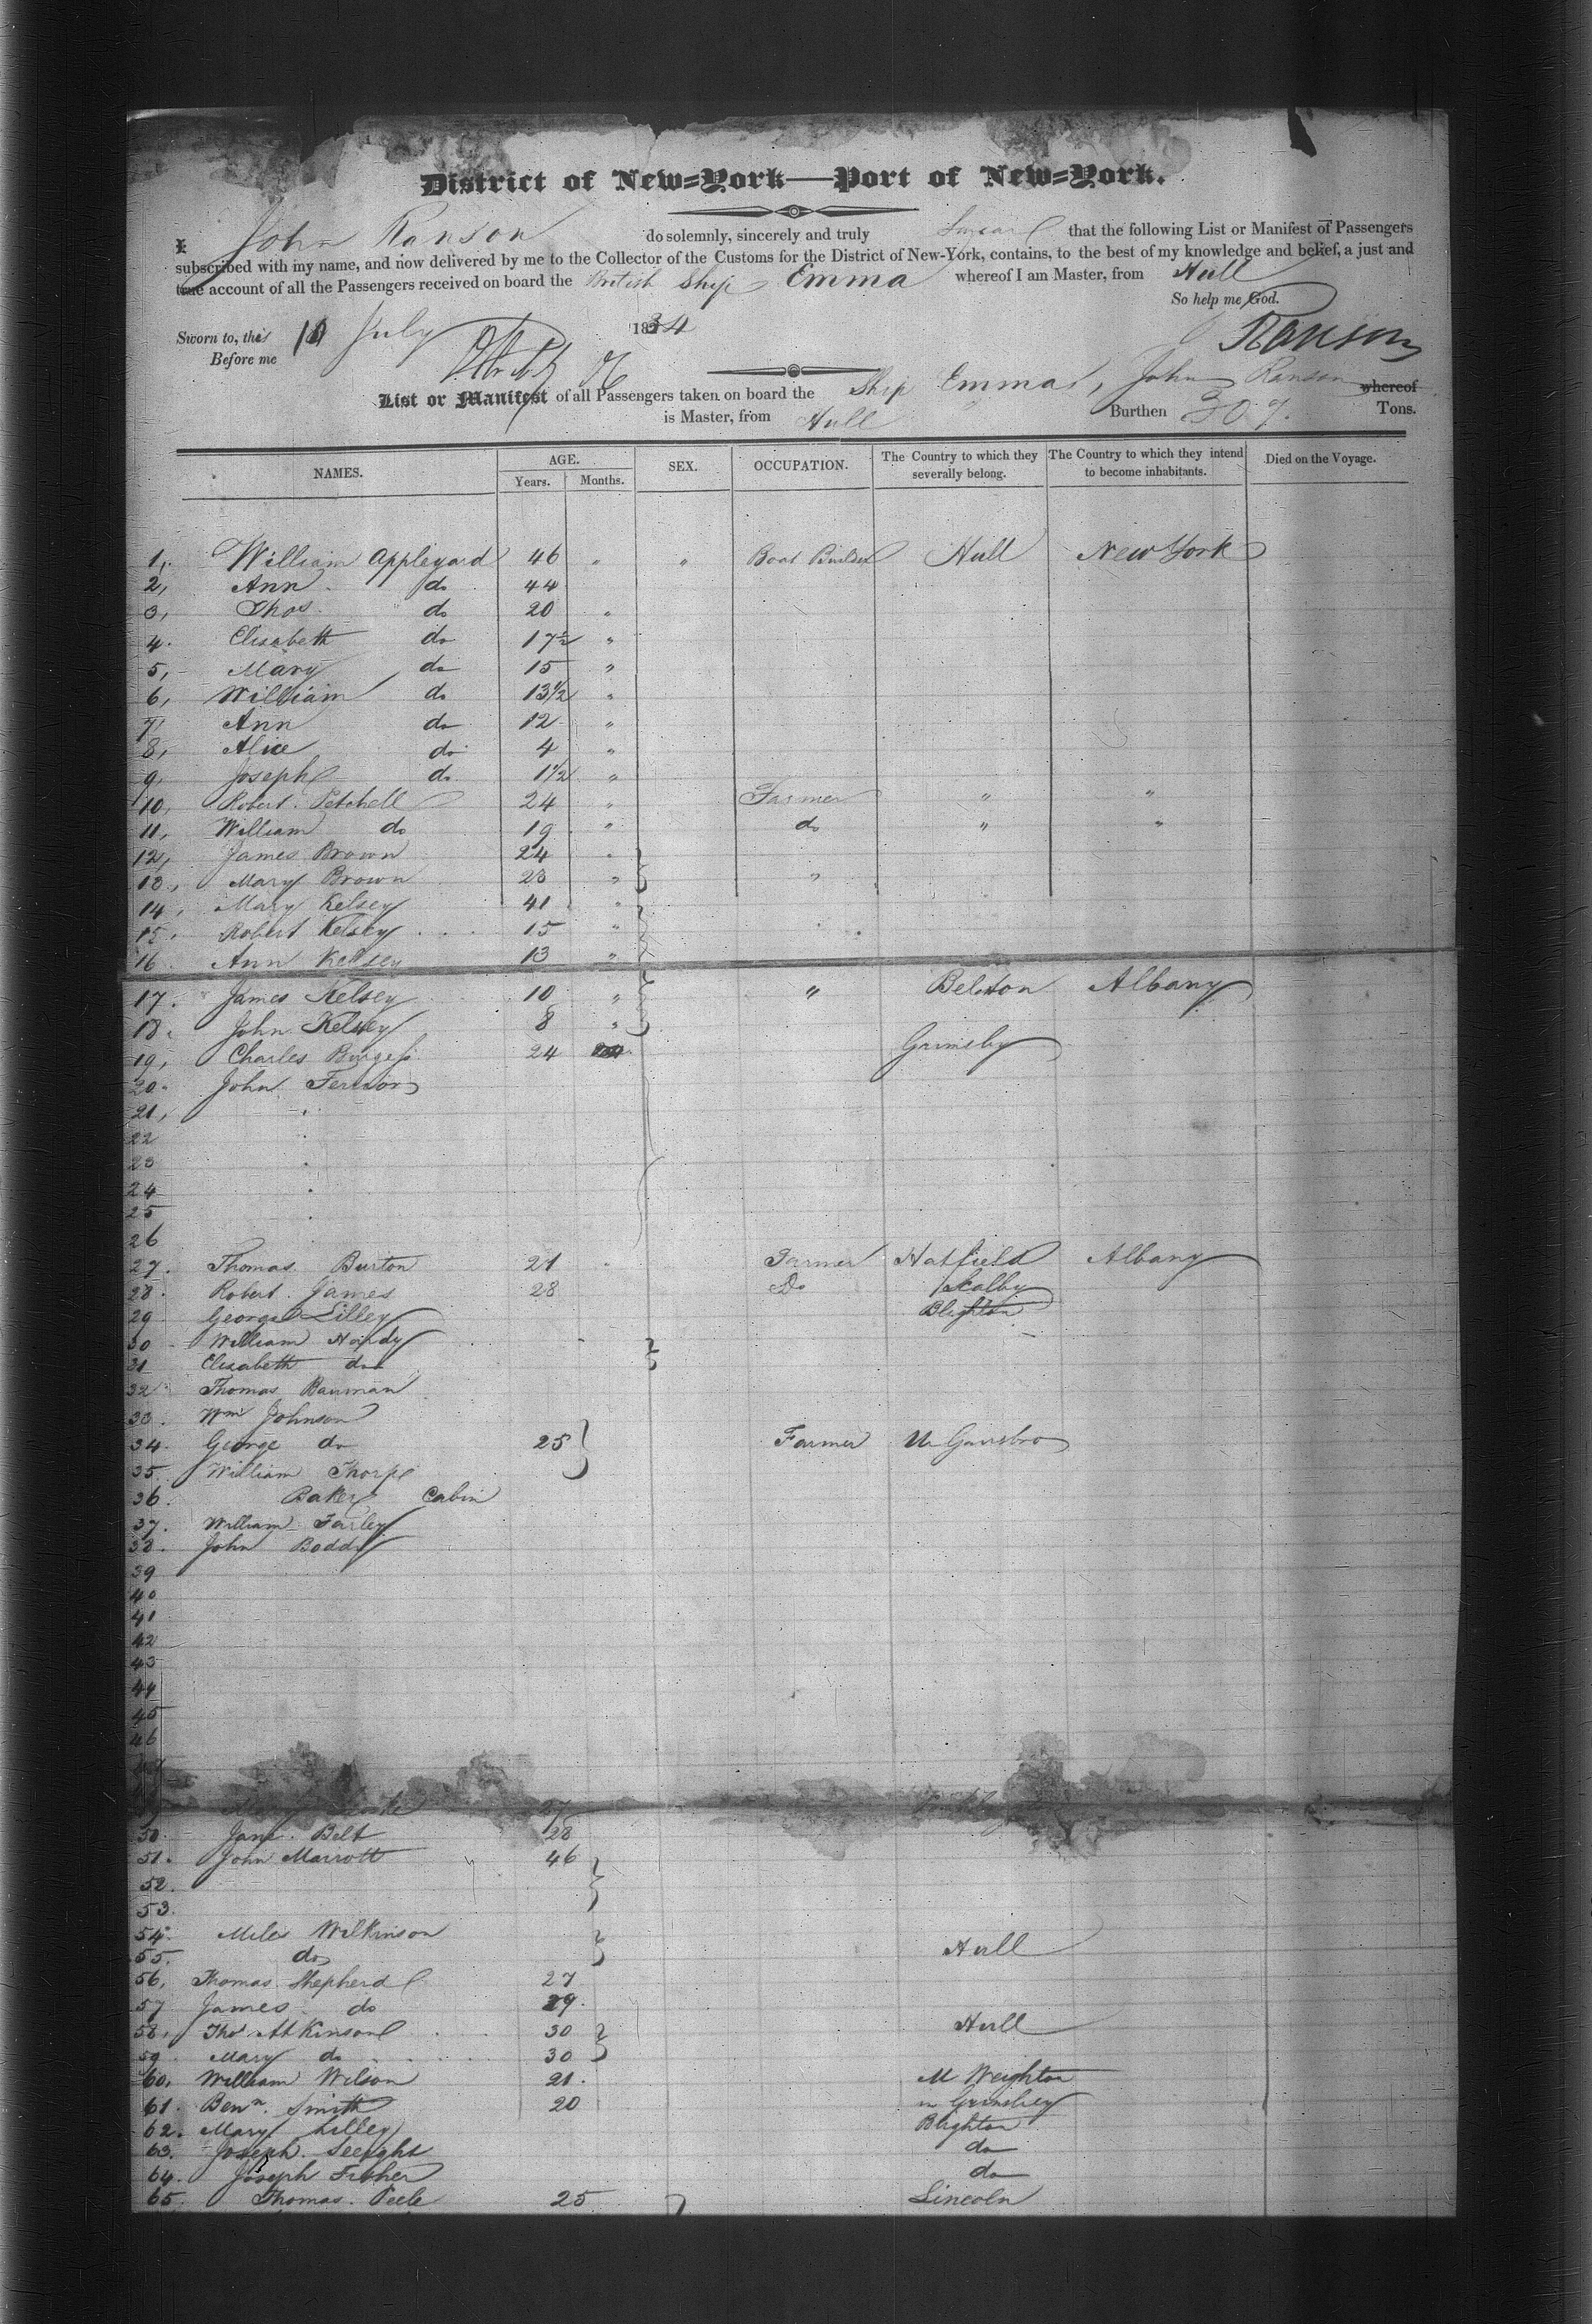 District of New-York—Port of New-York.
I John Ranson do solemnly, sincerely and truly Swear that the following List or Manifest of Passengers
subscribed with my name, and now delivered by me to the Collector of the Customs for the District of New-York, contains, to the best of my knowledge and belief, a just and
true account of all the Passengers received on board the British Ship Emma whereof I am Master, from Hull
So help me God.
Sworn to, this July 1834 Ranson
Before me
List or Manifest of all Passengers taken on board the Ship Emma, John Ranson whereof
is Master, from Hull Burthen 307. Tons.
NAMES. AGE. Years. Months. SEX. OCCUPATION. The Country to which they severally belong. The Country to which they intend to become inhabitants. Died on the Voyage.
1, William Appleyard 46 " " Boat Builder Hull New York
2, Ann do 44
3, Thos. do 20 "
4. Elisabeth do 17½ "
5, Mary do 15 "
6, William do 13½ "
7, Ann do 12 "
8, Alice do 4 "
9, Joseph do 1½ "
10, Robert. Petchell 24 " Farmer " "
11, William do 19 " do " "
12, James Brown 24 "
13, Mary Brown 23 " "
14, Mary Kelsey 41 "
15. Robert Kelsey 15 "
16. Ann Kelsey 13 "
17. James Kelsey 10 " " Belton Albany
18. John Kelsey 8 "
19, Charles Burgess 24 Grimsby
20. John
21,
22
23
24
25
26
27. Thomas Burton 21 Farmer Hatfield Albany
28. Robert. James 28 Do Scalby
29 George Lilley Blyton
30 William Hardy
31 Elisabeth do
32 Thomas
33. Wm Johnson
34. George do 25 Farmer Gainsbro
35. William Thorpe
36. Baker Cabin
37. William Farley
38. John Boddy
39
40
41
42
43
44
45
46
47
Mary
50. Jane. Belt 28
51. John Marrott 46
52.
53.
54. Miles Wilkinson Hull
55. do
56, Thomas Shepherd 27
57 James do 29.
58, Thos Atkinson 30 Hull
59. Mary do 30
60, William Wilson 21. M Weighton
61. Benn. Smith 20 Grimsby
62. Mary Lilley Blyton
63. Joseph. do
64. Joseph Fisher do
65. Thomas. Peele 25 Lincoln